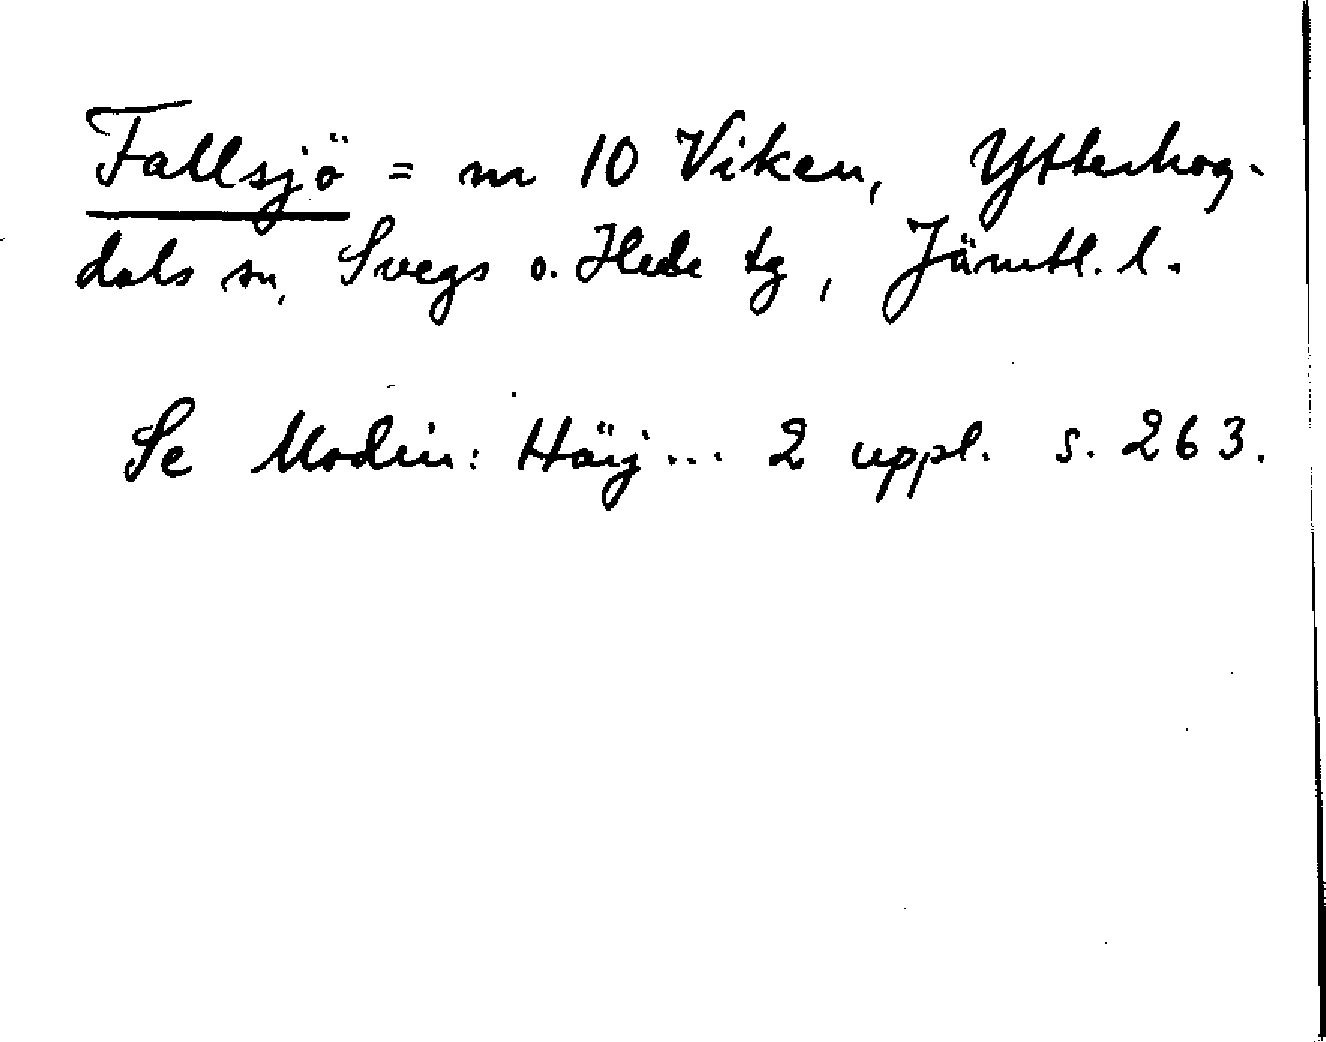 Fallsjö = nr 10 Viken, Ytterhog-
dals sn, Svegs o. Hede tg, Jämtl. l.
Se Modin: Härj... 2 uppl. s. 263.